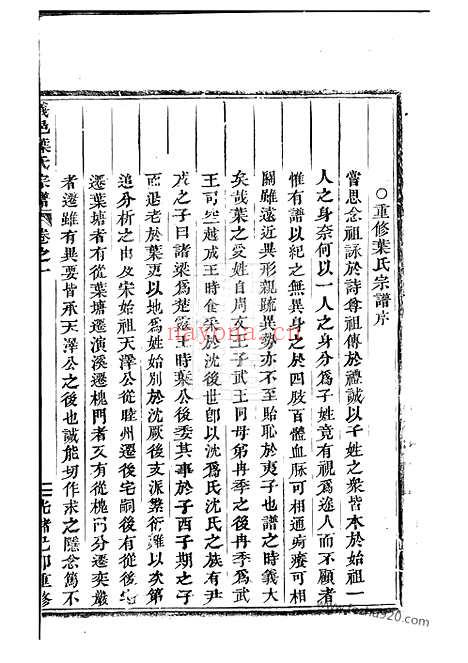 ○重修葉氏宗譜序
嘗思念祖詠於詩尊祖傳於禮誠以子姓之衆皆本於始祖一
人之身奈何以一人之身分爲子姓竟有視爲途人而不顧者
惟有譜以紀之無異身之於四肢百體血脈可相通痾癢可相
關雖遠近異形親疏異勢亦不至貽恥於夷子也譜之時義大
矣哉葉之爰姓自周文之子武王同母弟冉季之後冉季爲
王司空越成王時食於沈後世卽以沈爲氏沈氏之族有尹
戌之子曰諸梁爲楚王時葉公後委其事於子西子期之子
而退老於葉更以地爲姓始別於沈厥後支派繁衍難以次第
追分析之由及宋始祖天澤公從睦州遷後宅嗣後有從後
遷葉塘者有從葉塘遷演溪遷槐門者又有從槐門分遷奕巖
者遷雖有異要皆承天澤公之後也誠能切作求之隱念篤不
義邑葉氏宗譜 卷之一 光緒己卯重修
nayona.cn
www.fozhu920.com